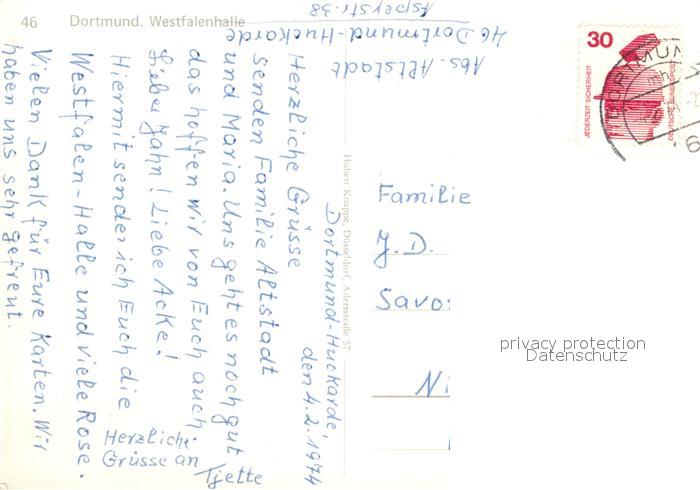 46 Dortmund. Westfalenhalle
Abs. Altstadt
46 Dortmund-Huckarde
Asperstr. 38
30
JEDERZEIT SICHERHEIT
DEUTSCHE BUNDESPOST
DORTMUN
Dortmund-Huckarde,
den 4.2.1974
Herzliche Grüsse
senden Familie Altstadt
und Maria. Uns geht es noch gut
das hoffen wir von Euch auch
Lieber Jahn! Liebe Acke!
Hiermit sende ich Euch die
Westfalen-Halle und viele Rose.
Vielen Dank für Eure Karten. Wir
haben uns sehr gefreut.
Herzliche
Grüsse an Tjette
Hubert Knappe, Düsseldorf, Adersstraße 57
Familie
J. D.
Savo
Ni
privacy protection
Datenschutz